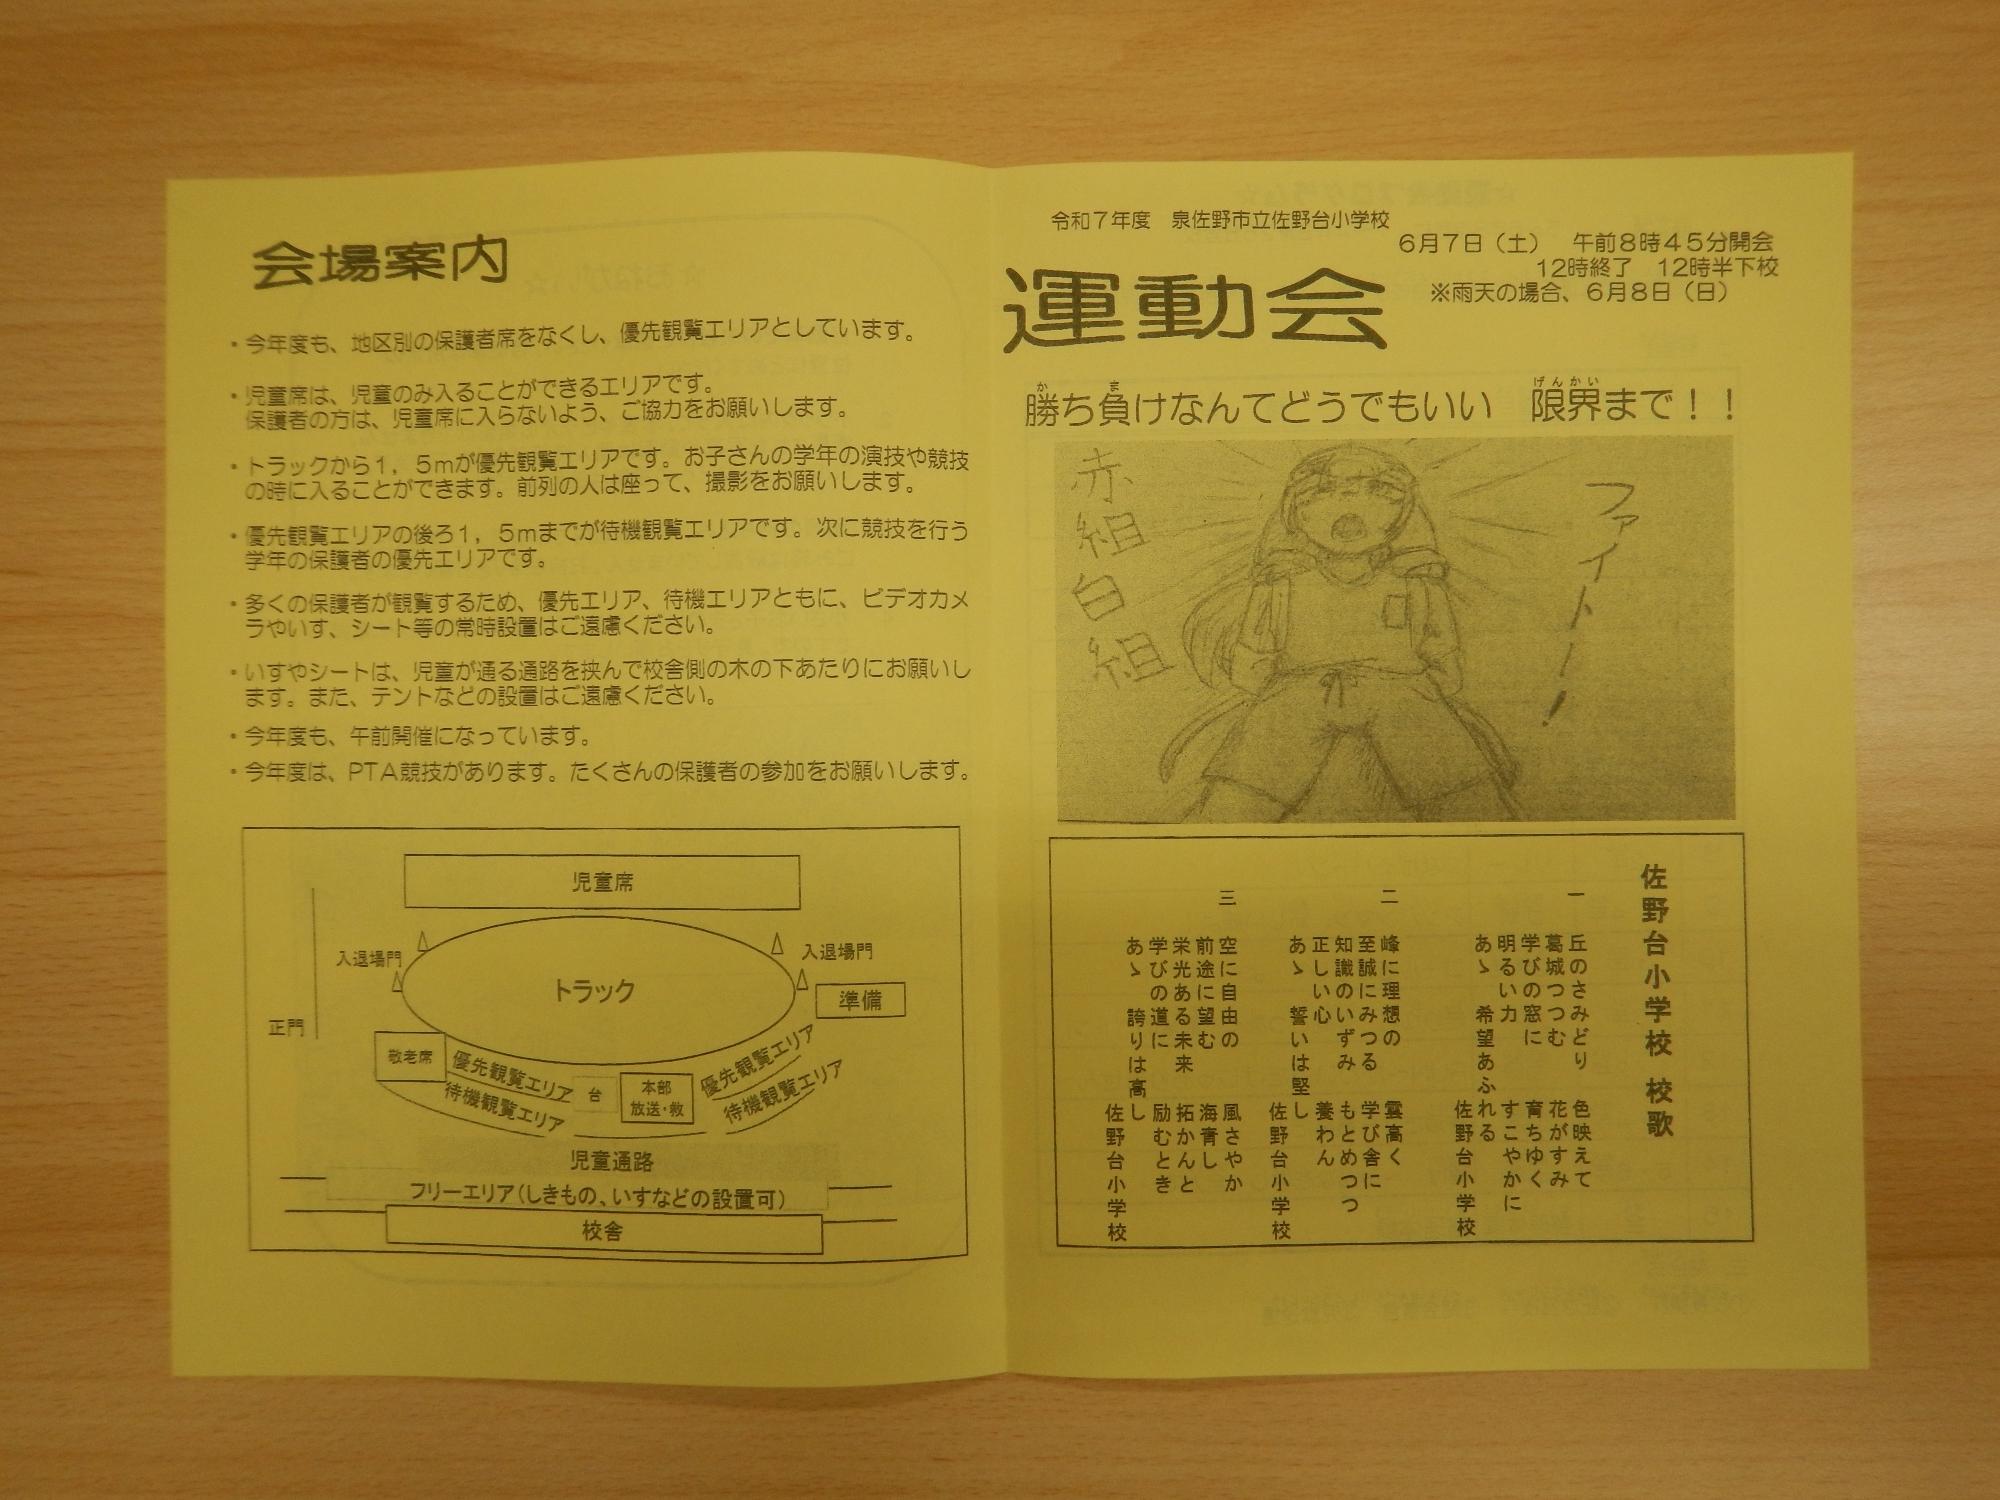 会場案内
・今年度も、地区別の保護者席をなくし、優先観覧エリアとしています。
・児童席は、児童のみ入ることができるエリアです。
保護者の方は、児童席に入らないよう、ご協力をお願いします。
・トラックから1，5mが優先観覧エリアです。お子さんの学年の演技や競技
の時に入ることができます。前列の人は座って、撮影をお願いします。
・優先観覧エリアの後ろ1，5mまでが待機観覧エリアです。次に競技を行う
学年の保護者の優先エリアです。
・多くの保護者が観覧するため、優先エリア、待機エリアともに、ビデオカメ
ラやいす、シート等の常時設置はご遠慮ください。
・いすやシートは、児童が通る通路を挟んで校舎側の木の下あたりにお願いし
ます。また、テントなどの設置はご遠慮ください。
・今年度も、午前開催になっています。
・今年度は、PTA競技があります。たくさんの保護者の参加をお願いします。
児童席
入退場門
入退場門
トラック
準備
正門
敬老席
優先観覧エリア
待機観覧エリア
台
本部
放送・救
優先観覧エリア
待機観覧エリア
児童通路
フリーエリア（しきもの、いすなどの設置可）
校舎
令和7年度　泉佐野市立佐野台小学校
6月7日（土）　午前8時45分開会
12時終了　12時半下校
※雨天の場合、6月8日（日）
運動会
か ま げんかい
勝ち負けなんてどうでもいい　限界まで！！
赤組白組
ファイトー！
佐野台小学校 校歌
一
丘のさみどり　色映えて
葛城つつむ　花がすみ
学びの窓に　育ちゆく
明るい力　すこやかに
あゝ　希望あふれる
佐野台小学校
二
峰に理想の　雲高く
至誠にみつる　学び舎に
知識のいずみ　もとめつつ
正しい心　養わん
あゝ　誓いは堅し
佐野台小学校
三
空に自由の　風さやか
前途に望む　海青し
栄光ある未来　拓かんと
学びの道に　励むとき
あゝ　誇りは高し
佐野台小学校